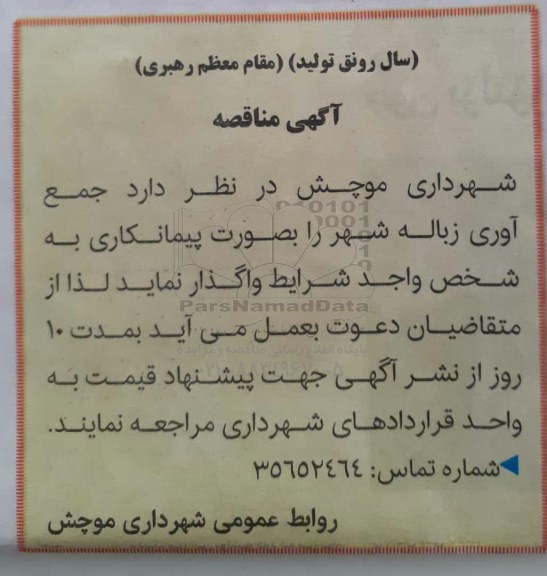 (سال رونق تولید) (مقام معظم رهبری)
آگهی مناقصه
شهرداری موچش در نظر دارد جمع
آوری زباله شهر را بصورت پیمانکاری به
شخص واجد شرایط واگذار نماید لذا از
ParsNamadData
متقاضیان دعوت بعمل می آید بمدت ۱۰
پایگاه اطلاع رسانی مناقصه و مزایده
روز از نشر آگهی جهت پیشنهاد قیمت به
واحد قراردادهای شهرداری مراجعه نمایند.
شماره تماس: ۳۵۶۵۲۴۶۴
روابط عمومی شهرداری موچش